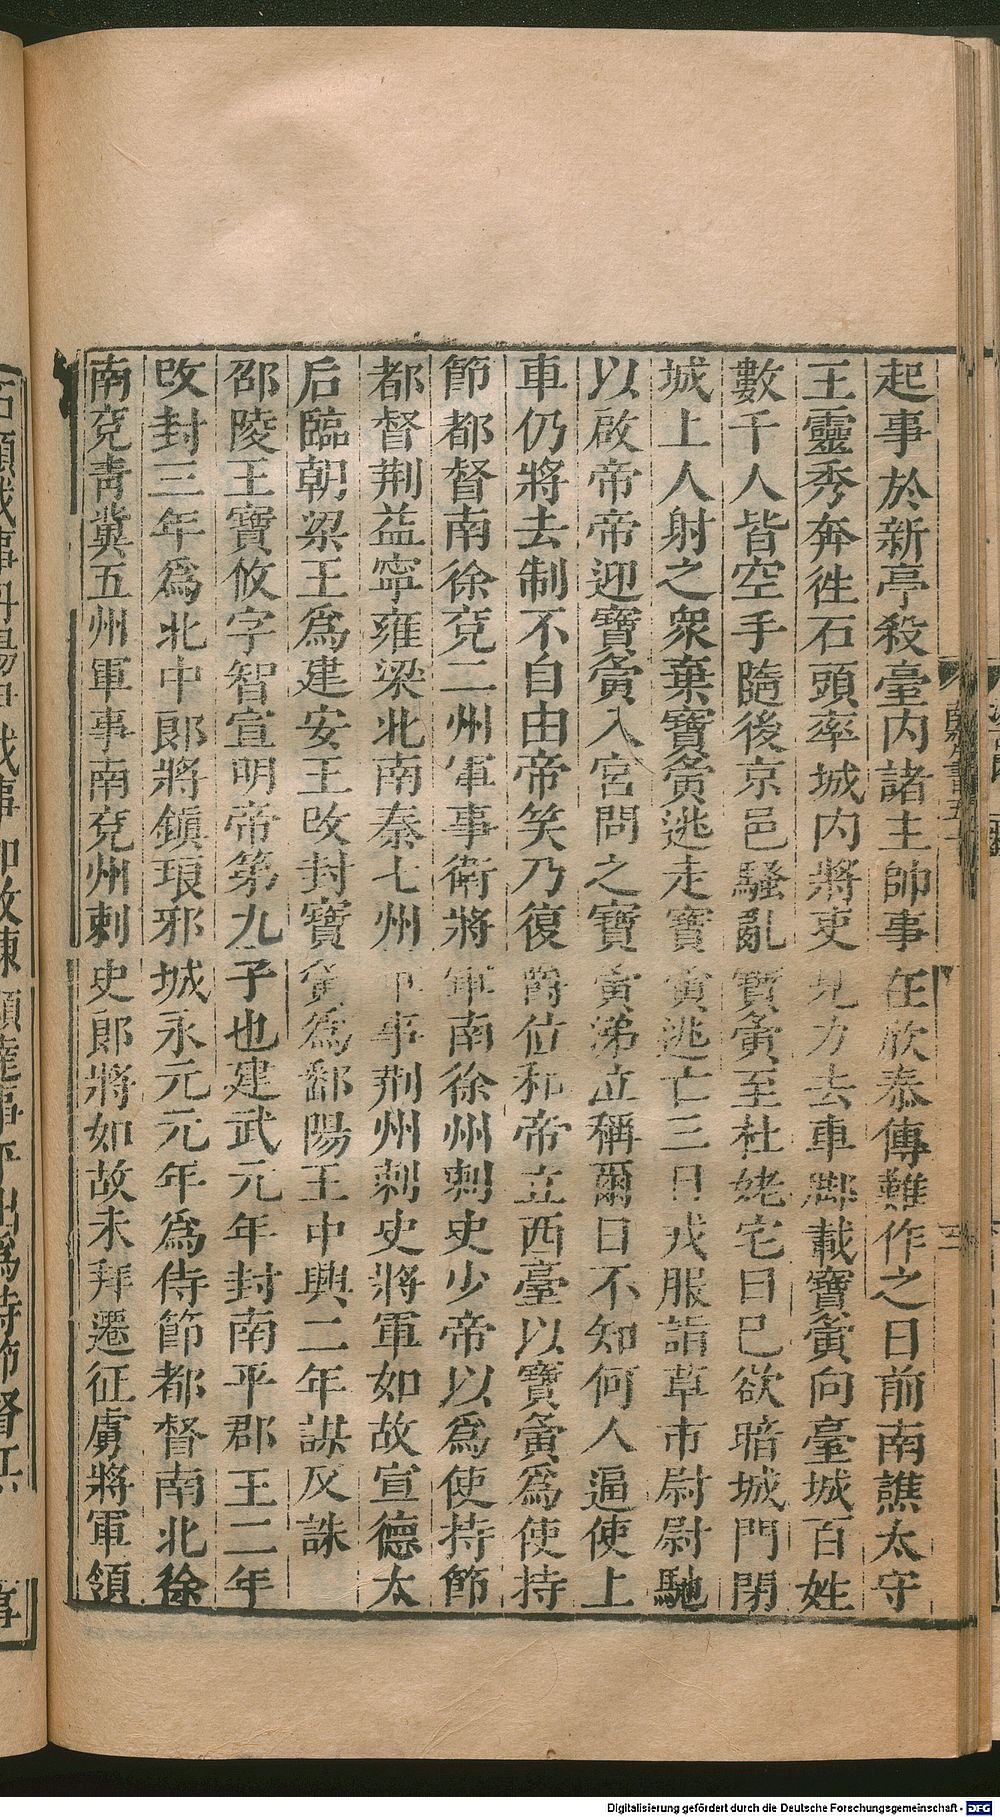 起事於新亭殺臺内諸主帥事在欣泰傳難作之日前南譙太守
王靈秀奔徃石頭率城内將吏見力去車脚載寶夤向臺城百姓
數千人皆空手隨後京邑騷亂寶夤至杜姥宅日巳欲暗城門閉
城上人射之衆棄寶夤逃走寶夤逃亡三日戎服詣草市尉尉馳
以啟帝帝迎寶夤入宮問之寶夤涕泣稱爾日不知何人逼使上
車仍將去制不自由帝笑乃復爵位和帝立西臺以寶夤爲使持
節都督南徐兗二州軍事衛將軍南徐州刺史少帝以爲使持節
都督荆益寧雍梁北南秦七州軍事荆州刺史將軍如故宣德太
后臨朝梁王爲建安王改封寶夤爲鄱陽王中興二年謀反誅
邵陵王寶攸字智宣明帝第九子也建武元年封南平郡王二年
改封三年爲北中郎將鎭琅邪城永元元年爲侍節都督南北徐
南兗靑冀五州軍事南兗州刺史郎將如故未拜遷征虜將軍領
Digitalisierung gefördert durch die Deutsche Forschungsgemeinschaft - DFG